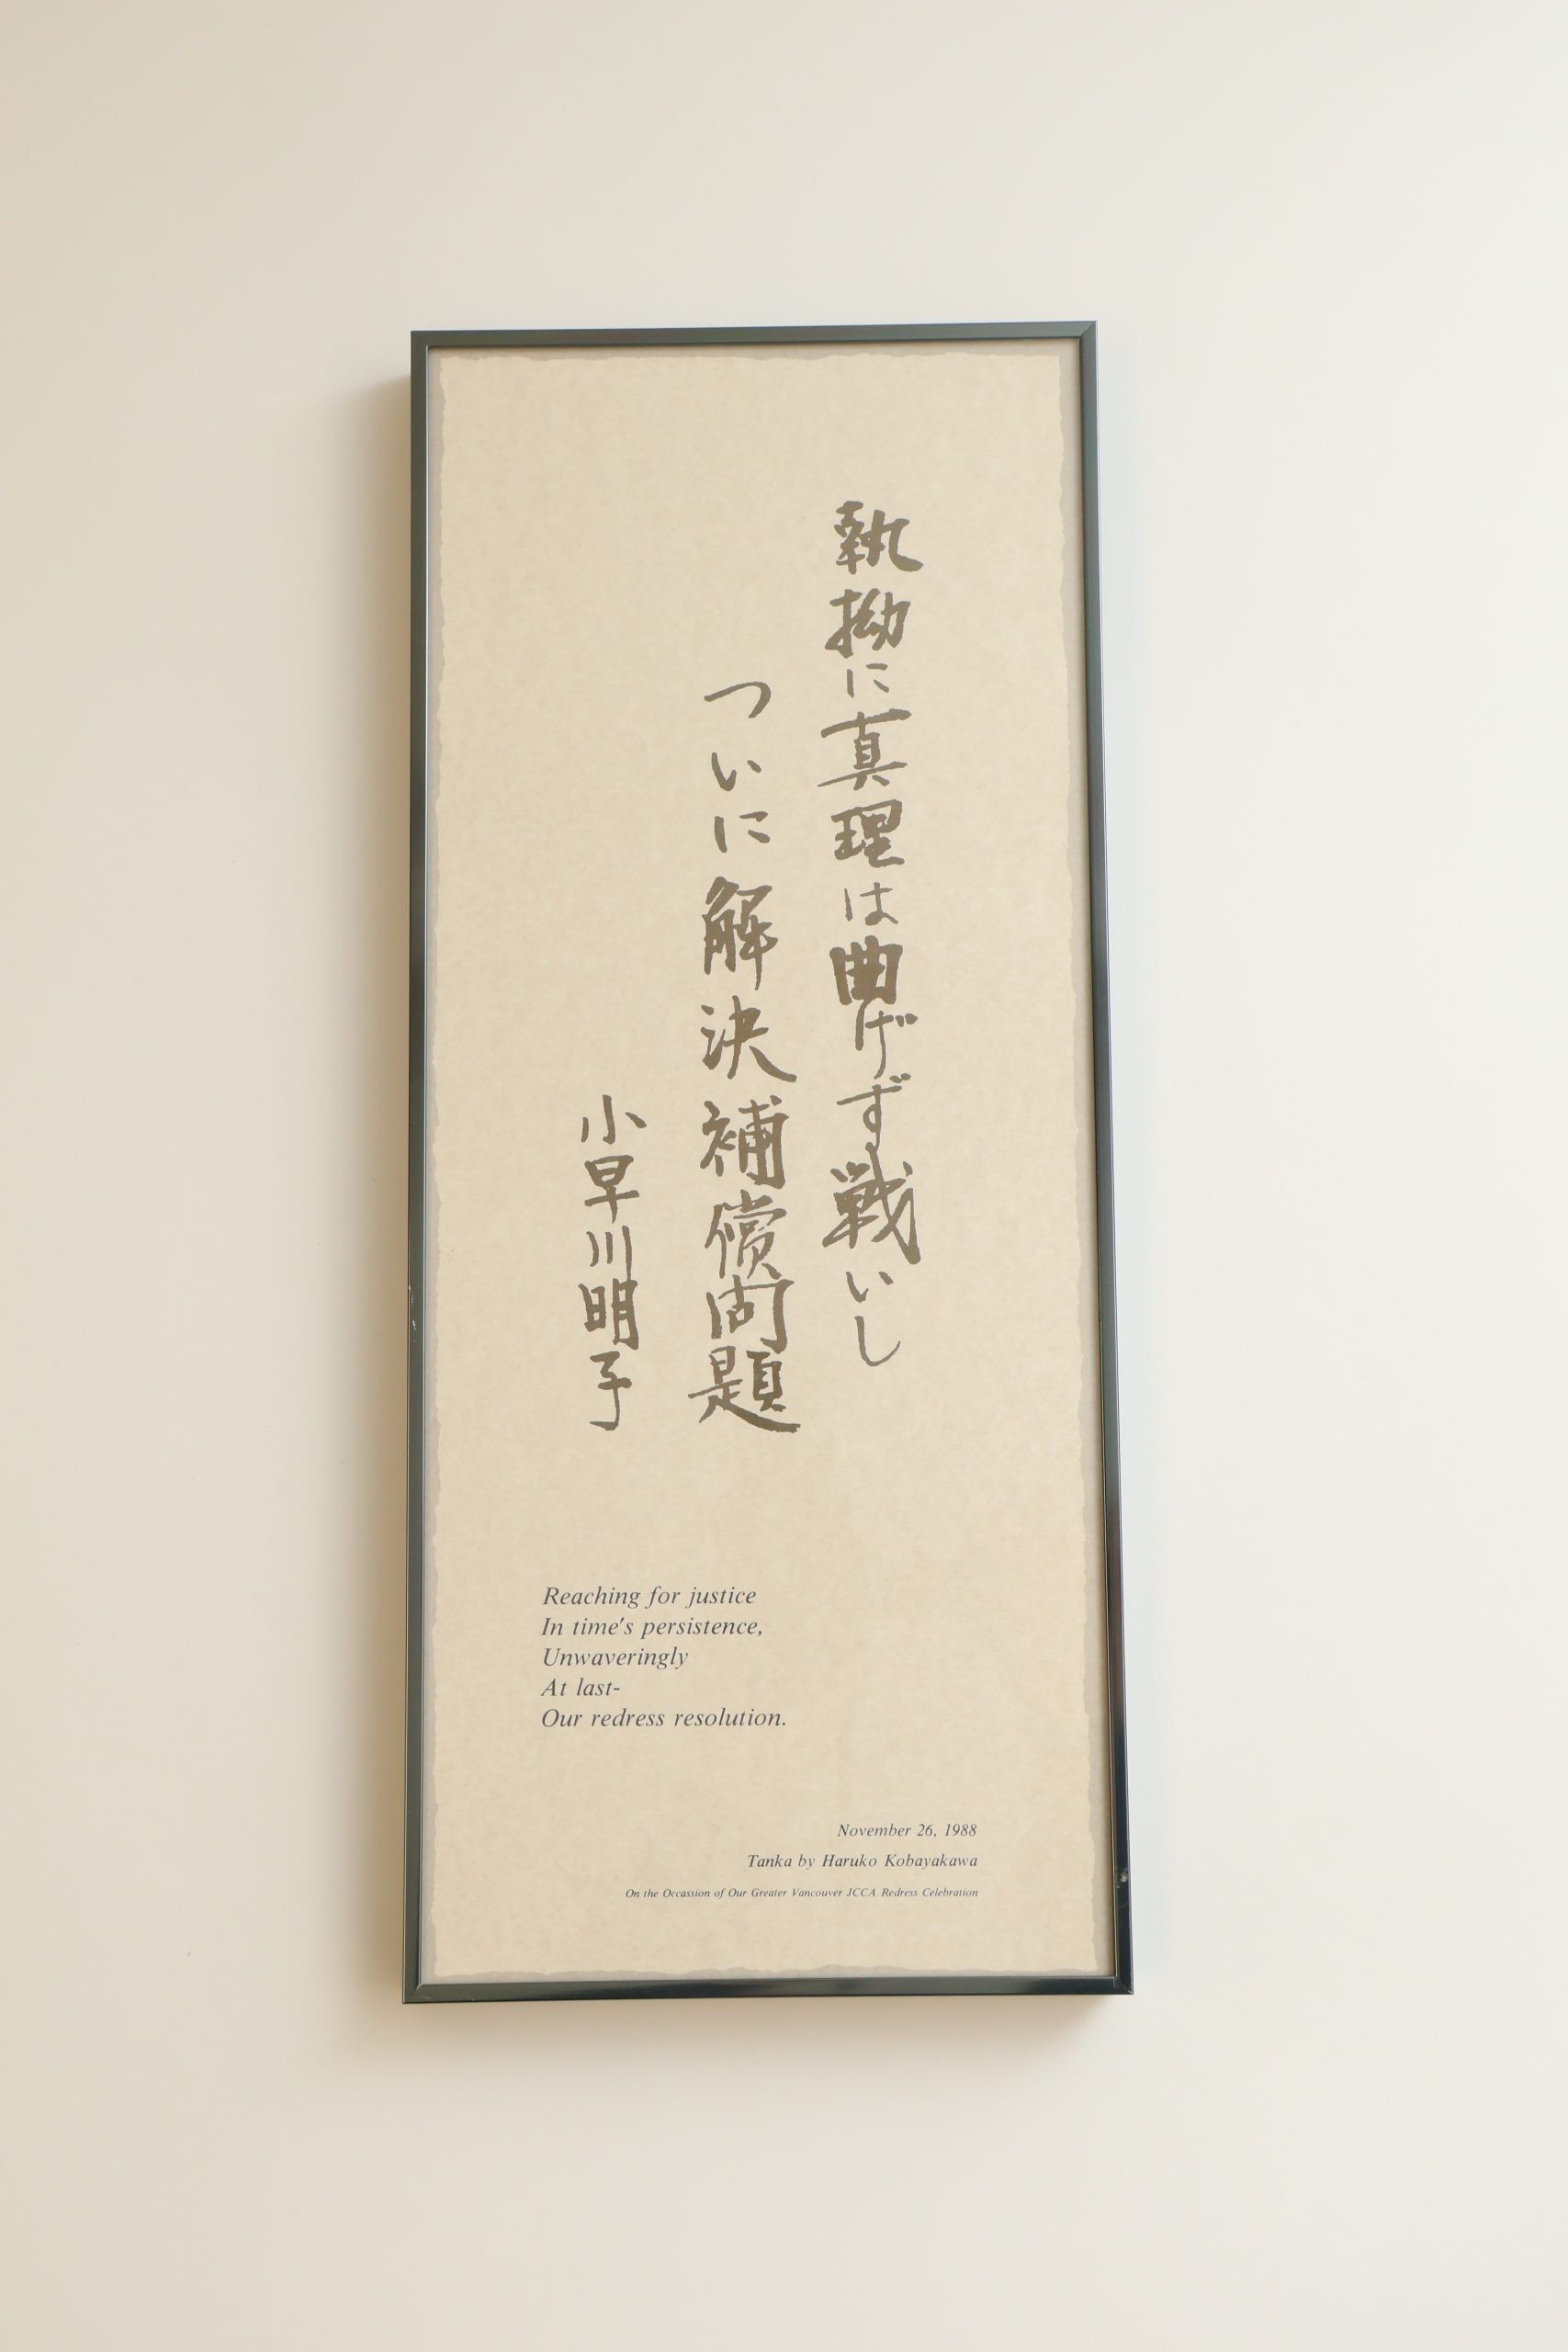 執拗に真理は曲げず戦いし
ついに解決補償問題
小早川明子
Reaching for justice
In time's persistence,
Unwaveringly
At last-
Our redress resolution.
November 26, 1988
Tanka by Haruko Kobayakawa
On the Occassion of Our Greater Vancouver JCCA Redress Celebration